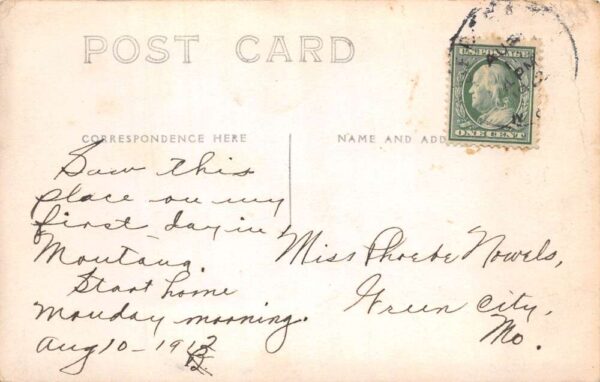 POST CARD
U.S. POSTAGE
ONE CENT
CORRESPONDENCE HERE
NAME AND ADD
Saw this
place on my
first day in
Montana.
Start home
Monday morning.
Aug 10 - 1912
Miss Phoebe Nowels,
Green City,
Mo.